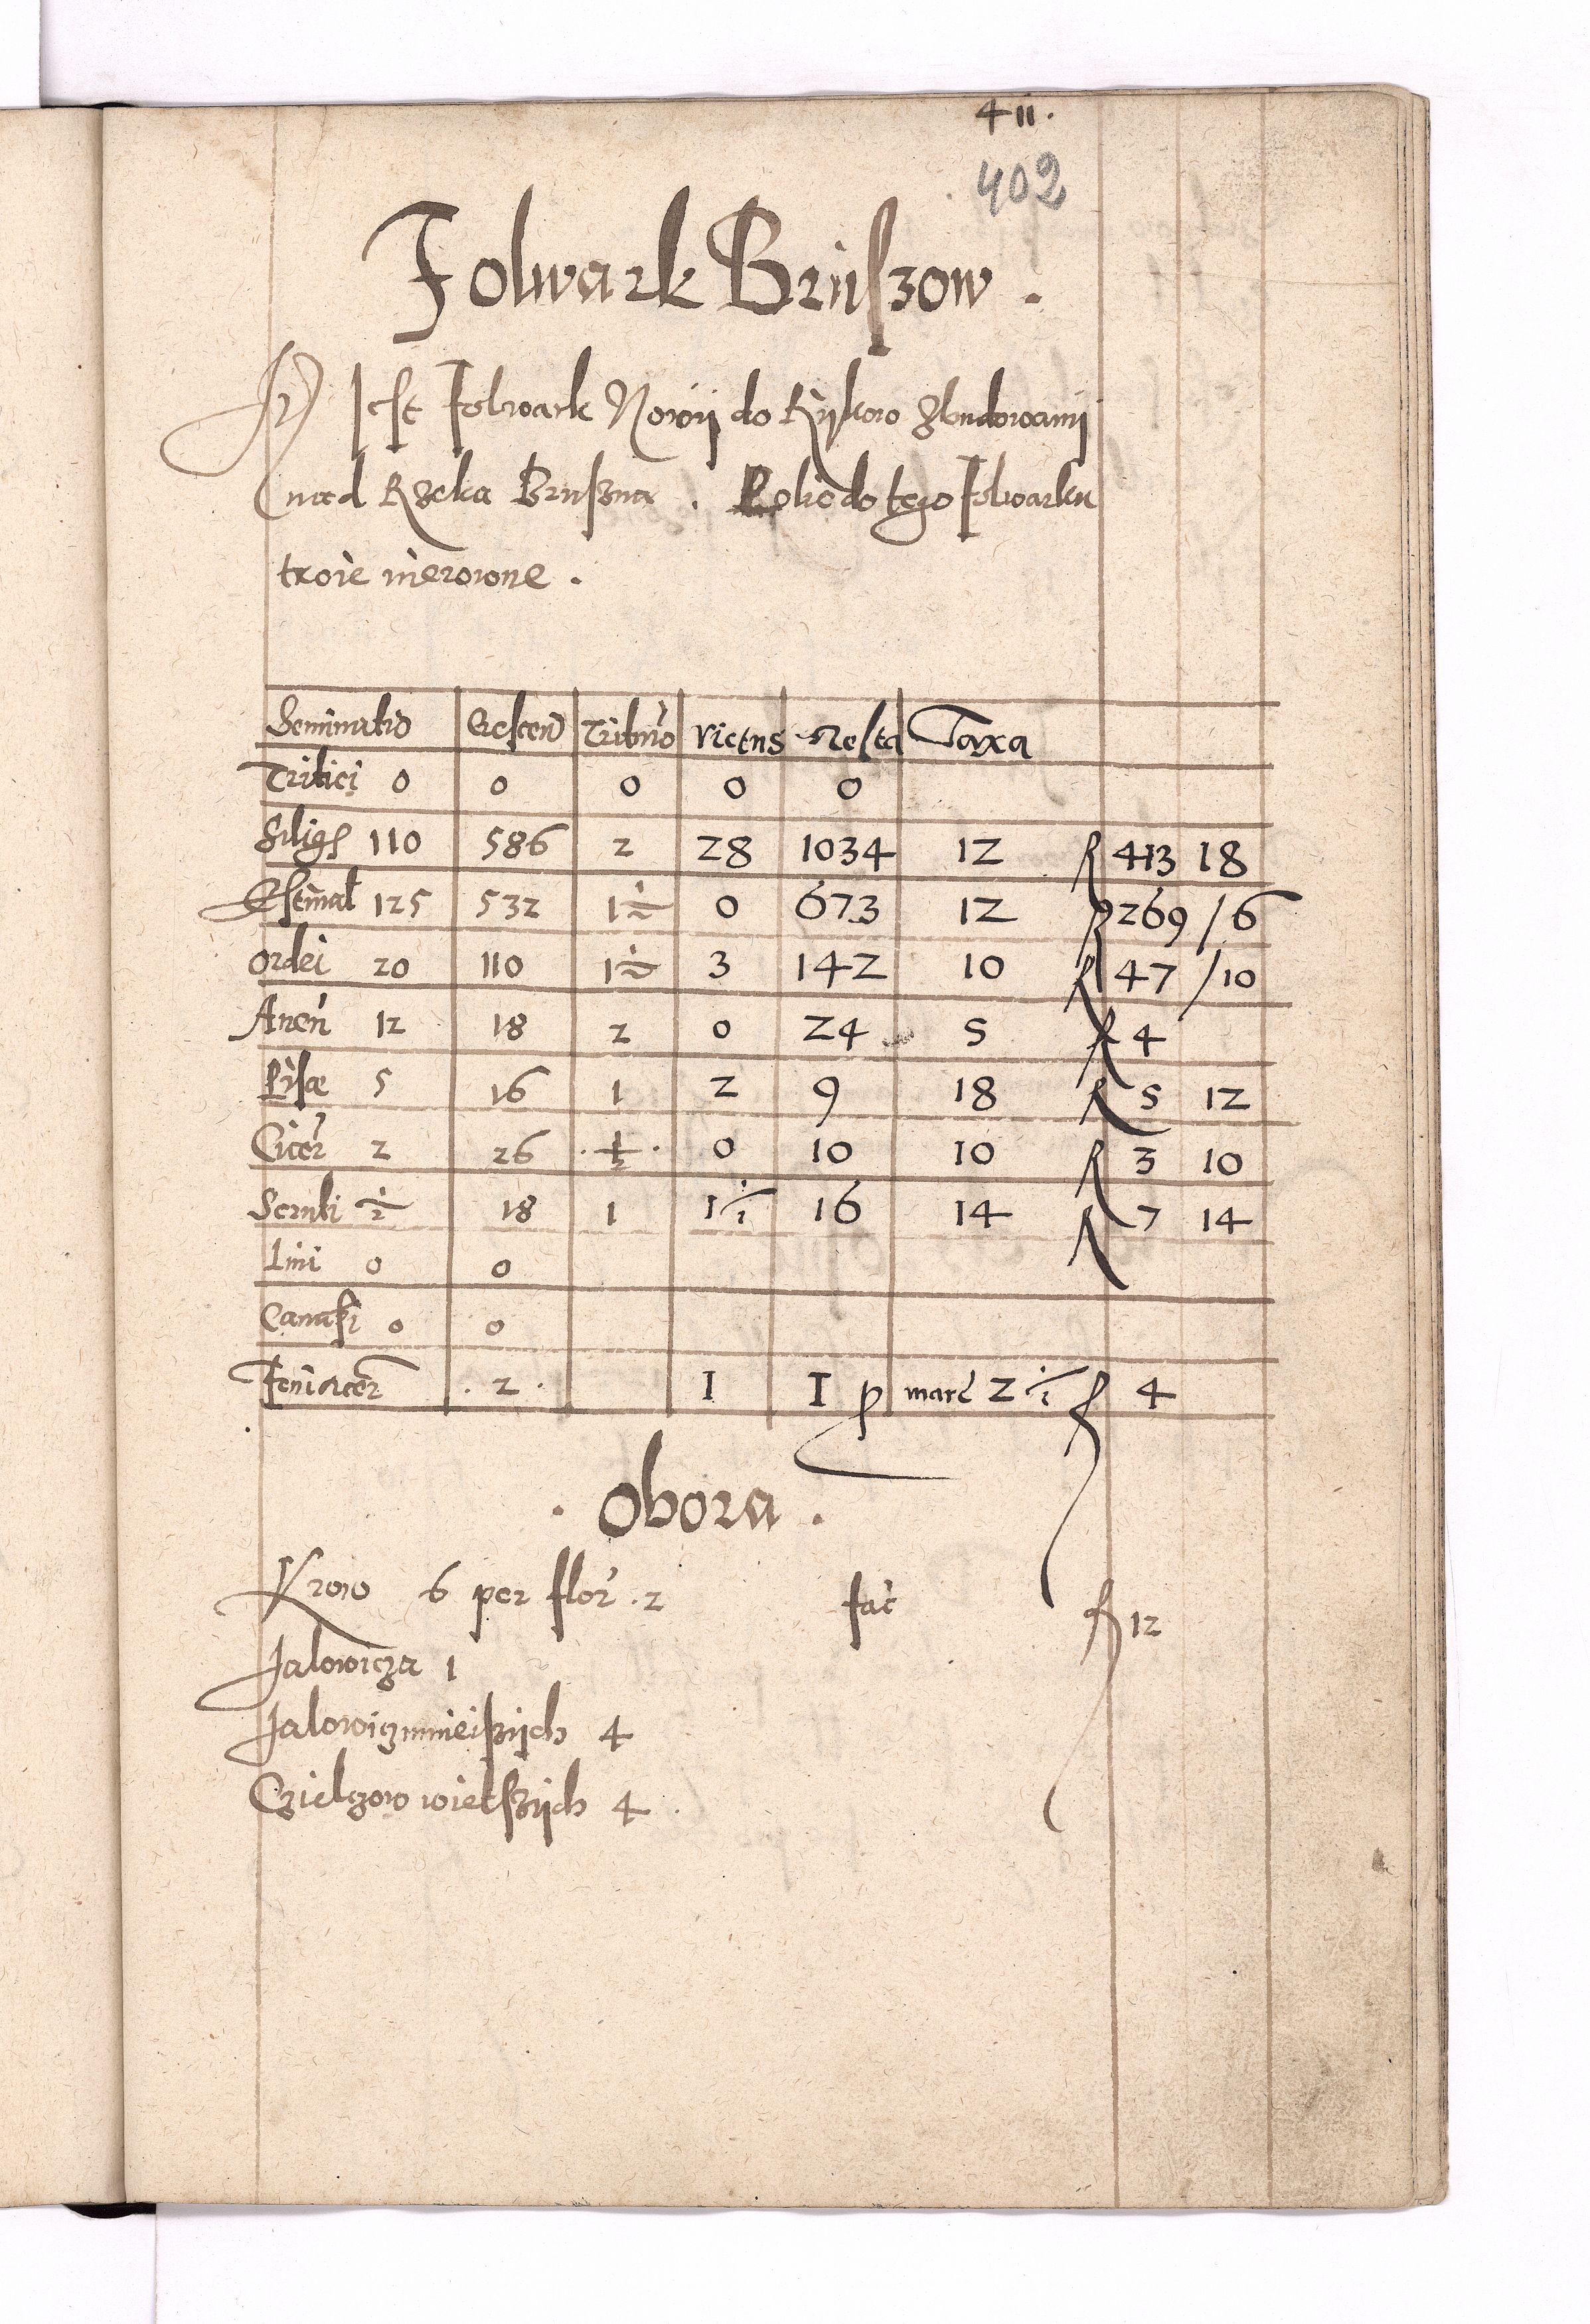 411.
402
Folwark Bruszow.
Jest Folwark Nowÿ do Rÿkow Zbudowanÿ
nad Rzeka Bruszna. Rolio do tego Folwarku
troie nierowne.
Seminatio Crescen Tritur Victus Resta Taxa
Tritici 0 0 0 0 0
Silig 110 586 2 28 1034 12 fl 413 18
125 532 1 1/2 0 673 12 fl 269 /6
Ordei 20 110 1 1/2 3 142 10 fl 47 /10
Aven 12 18 2 0 24 5 fl 4
Pisae 5 16 1 2 9 18 fl 5 12
Cicer 2 26 1/2 0 10 10 fl 3 10
1/2 18 1 1 1/2 16 14 fl 7 14
Lini 0 0
Canapi 0 0
Feni acer .2. 1 1 p marc 2 1/2 fl 4
. Obora .
Krow 6 per flor. 2 fac fl 12
Jalowicza 1
Jalowicz mnieiszÿch 4
Czielczow wietszÿch 4.